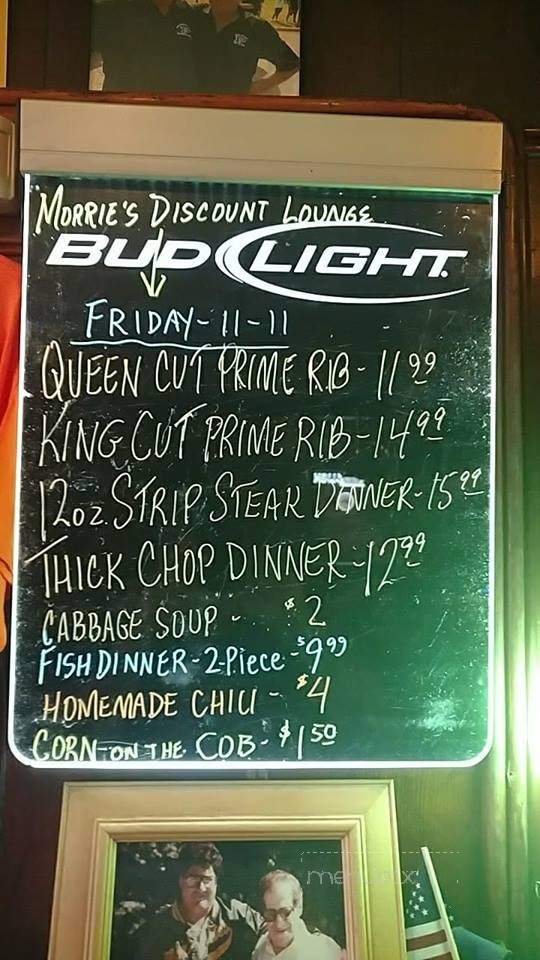 MORRIE'S DISCOUNT LOUNGE
BUD LIGHT
FRIDAY-11-11
QUEEN CUT PRIME RIB - 11 99
KING CUT PRIME RIB - 14 99
12oz. STRIP STEAK DINNER - 15 99
THICK CHOP DINNER - 12 99
CABBAGE SOUP - $2
FISH DINNER - 2-Piece - $9 99
HOMEMADE CHILI - $4
CORN-ON THE COB - $1 50
menupix